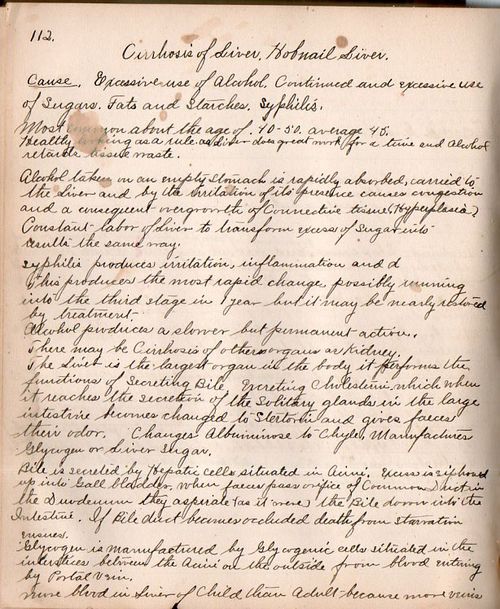 112.
Cirrhosis of Liver. Hobnail Liver.
Cause. Excessive use of Alcohol. Continued and excessive use
of Sugars. Fats and Starches. Syphilis.
Most common about the age of 40-50. average 45.
Healthy looking as a rule as Liver does great work for a time and Alcohol
retards tissue waste.
Alcohol taken on an empty stomach is rapidly absorbed, carried to
the Liver and by the irritation of its presence causes congestion
and a consequent overgrowth of Connective tissue (Hyperplasia)
Constant labor of Liver to transform excess of Sugar into
results the same way.
Syphilis produces irritation, inflammation and d
This produces the most rapid change, possibly running
into the third stage in 1 year but it may be nearly restored
by treatment.
Alcohol produces a slower but permanent action.
There may be Cirrhosis of other organs as Kidney.
The Liver is the largest organ in the body it performs the
functions of Secreting Bile, Excreting Cholesterin, which when
it reaches the secretion of the Solitary glands in the large
intestine becomes changed to Stertorin and gives faeces
their odor. Changes Albuminose to Chyle, Manufactures
Glycogen or Liver Sugar.
Bile is secreted by Hepatic cells situated in Acini. Excess is siphoned
up into Gall bladder, when faeces pass orifice of Common Duct in
the Duodenum they aspirate (as it were) the Bile down into the
Intestine. If Bile duct becomes occluded death from starvation
ensues.
Glycogen is manufactured by Glycogenic cells situated in the
interstices between the Acini on the outside from blood entering
by Portal Vein.
more blood in Liver of Child than Adult because more veins